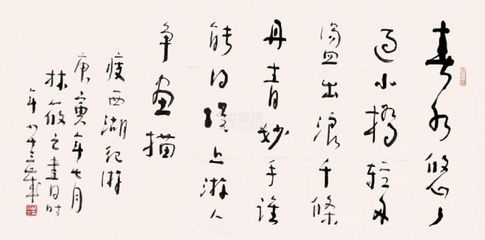 春水悠々
過小橋輕舟
盪出浪千條
丹青妙手誰
能得堤上游人
争畫描
瘦西湖紀游
庚寅年七月
林筱之書日时
年八十三歲